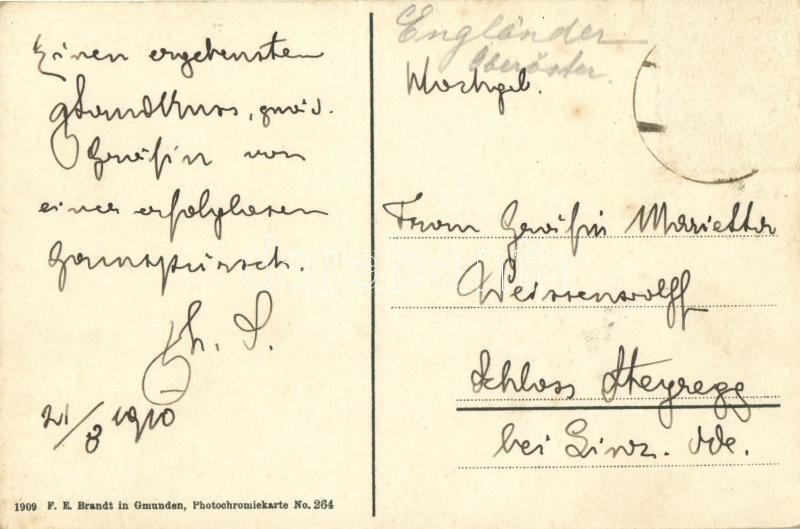 Einen ergebensten
Handkuss, gnäd.
Gräfin von
einer erfolglosen
Gamspürsch.
Th. S.
21/8 1910
1909 F. E. Brandt in Gmunden, Photochromiekarte No. 264
Engländer
Oberöster.
Frau Gräfin Marietta
Weissenwolff
Schloss Steyregg
bei Linz.